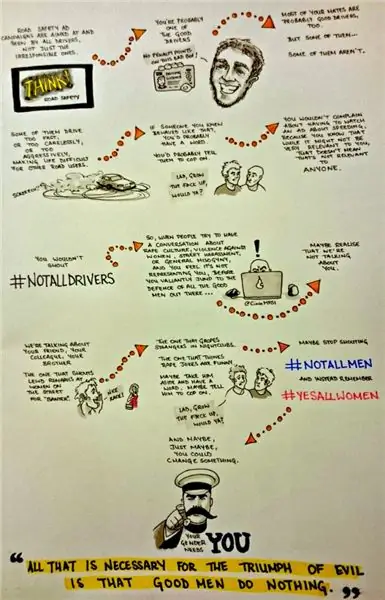 ROAD SAFETY AD
CAMPAIGNS ARE AIMED AT AND
SEEN BY ALL DRIVERS,
NOT JUST THE
IRRESPONSIBLE ONES.
THINK!
ROAD SAFETY
YOU'RE PROBABLY
ONE OF THE
GOOD
DRIVERS
NO PENALTY POINTS
ON THIS BAD BOY!
MOST OF YOUR MATES ARE
PROBABLY GOOD DRIVERS,
TOO.
BUT SOME OF THEM...
SOME OF THEM AREN'T.
SOME OF THEM DRIVE
TOO FAST,
OR TOO CARELESSLY,
OR TOO
AGGRESSIVELY,
MAKING LIFE DIFFICULT
FOR OTHER ROAD USERS.
IF SOMEONE YOU KNEW
BEHAVED LIKE THAT,
YOU'D PROBABLY
HAVE A WORD.
YOU'D PROBABLY TELL
THEM TO COP ON.
LAD, GROW
THE F*CK UP,
WOULD YA?
YOU WOULDN'T COMPLAIN
ABOUT HAVING TO WATCH
AN AD ABOUT SPEEDING,
BECAUSE YOU KNOW THAT
WHILE IT MIGHT NOT BE
VERY RELEVANT TO YOU,
THAT DOESN'T MEAN
THAT'S NOT RELEVANT
TO
ANYONE.
YOU WOULDN'T
SHOUT
#NOTALLDRIVERS
SO, WHEN PEOPLE TRY TO HAVE
A CONVERSATION ABOUT
RAPE CULTURE, VIOLENCE AGAINST
WOMEN, STREET HARASSMENT,
OR GENERAL MISOGYNY,
AND YOU FEEL IT'S NOT
REPRESENTING YOU, BEFORE
YOU VALIANTLY JUMP TO THE
DEFENCE OF ALL THE GOOD
MEN OUT THERE...
!
MAYBE REALISE
THAT WE'RE
NOT TALKING
ABOUT
YOU.
WE'RE TALKING ABOUT
YOUR FRIEND, YOUR
COLLEAGUE, YOUR
BROTHER.
THE ONE THAT SHOUTS
LEWD REMARKS AT
WOMEN ON
THE STREET
FOR "BANTER".
NICE
RACK!
THE ONE THAT GROPES
STRANGERS IN NIGHTCLUBS.
THE ONE THAT THINKS
RAPE JOKES ARE FUNNY.
MAYBE TAKE HIM
ASIDE AND HAVE A
WORD. MAYBE TELL
HIM TO COP ON.
LAD, GROW
THE F*CK UP,
WOULD YA?
MAYBE STOP SHOUTING
#NOTALLMEN
AND INSTEAD REMEMBER
#YESALLWOMEN
AND MAYBE,
JUST MAYBE,
YOU COULD
CHANGE SOMETHING.
YOUR
GENDER
NEEDS
YOU
"ALL THAT IS NECESSARY FOR THE TRIUMPH OF EVIL
IS THAT GOOD MEN DO NOTHING."